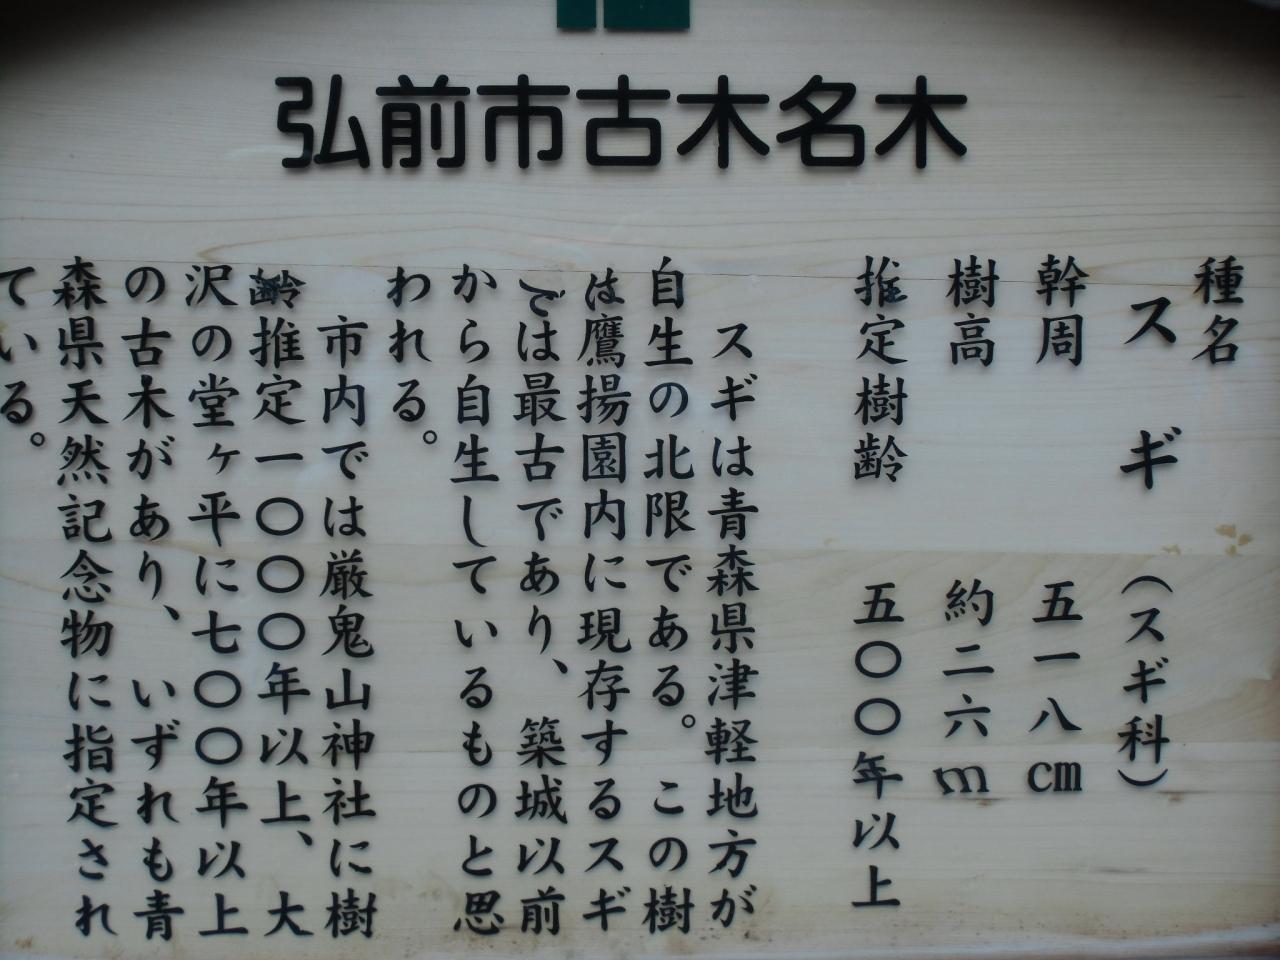 弘前市古木名木
種名
スギ（スギ科）
幹周 五一八cm
樹高 約二六m
推定樹齢 五〇〇年以上
スギは青森県津軽地方が
自生の北限である。この樹
は鷹揚園内に現存するスギ
では最古であり、築城以前
から自生しているものと思
われる。
市内では厳鬼山神社に樹
齢推定一〇〇〇年以上、大
沢の堂ヶ平に七〇〇年以上
の古木があり、いずれも青
森県天然記念物に指定され
ている。